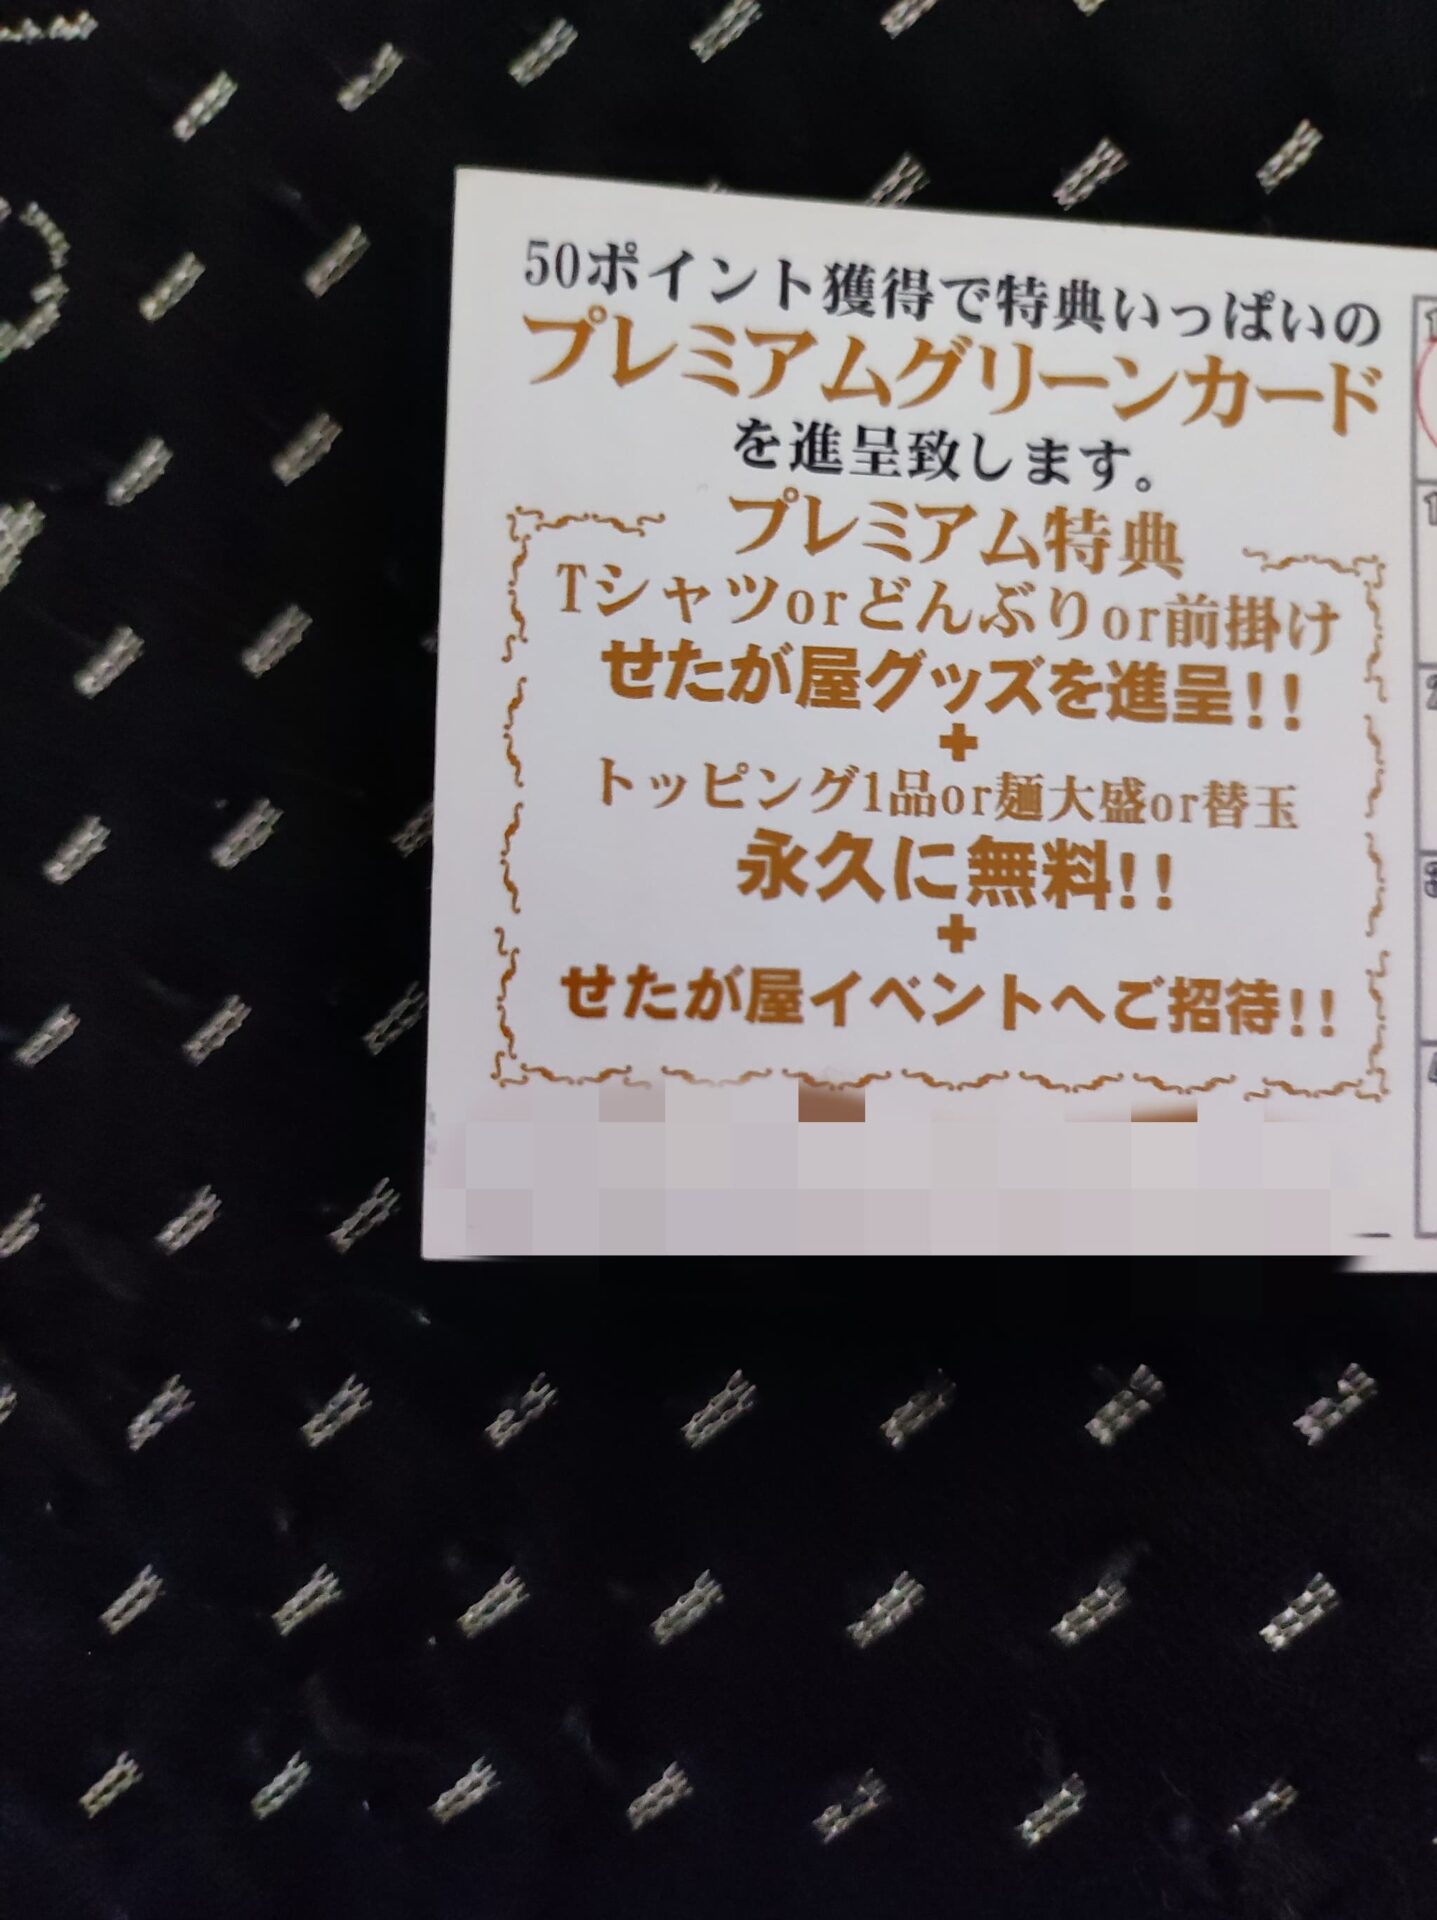 50ポイント獲得で特典いっぱいの
プレミアムグリーンカード
を進呈致します。
プレミアム特典
Tシャツorどんぶりor前掛け
せたが屋グッズを進呈!!
+
トッピング1品or麺大盛or替玉
永久に無料!!
+
せたが屋イベントへご招待!!